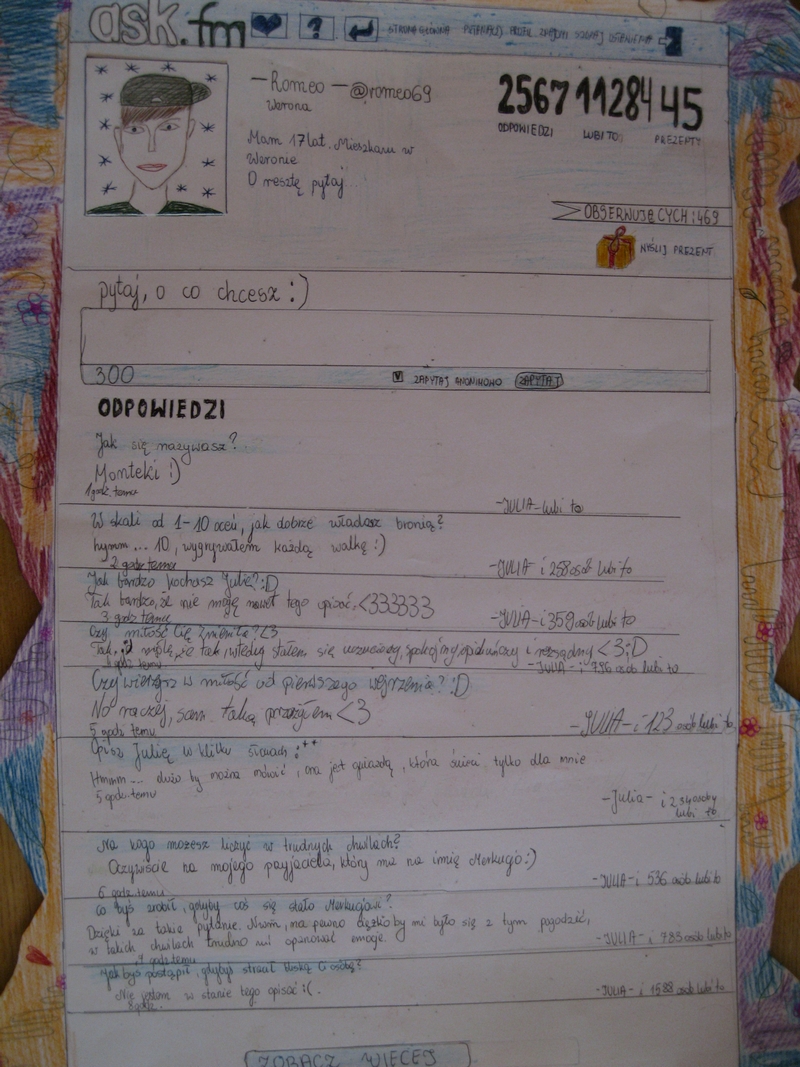 ask.fm ? STRONA GŁÓWNA
—Romeo— @romeo69
Werona
Mam 17 lat. Mieszkam w
Weronie
O resztę pytaj
2567 11284 45
ODPOWIEDZI LUBI TO: PREZENTY
OBSERWUJĄCYCH: 469
WYŚLIJ PREZENT
pytaj, o co chcesz :)
300 ZAPYTAJ ANONIMOWO ZAPYTAJ
ODPOWIEDZI
Jak się nazywasz?
Monteki :)
1 godz. temu
-JULIA- lubi to
W skali od 1-10 oceń, jak dobrze władasz bronią?
hymm... 10, wygrywałem każdą walkę :)
2 godz temu
-JULIA- i 258 osób lubi to
Jak bardzo kochasz Julię? :D
Tak bardzo, że nie mogę nawet tego opisać. <333333
3 godz temu
-JULIA- i 359 osób lubi to
Czy miłość Cię zmieniła? <3
Tak, myślę, że tak, wtedy stałem się uczuciowy, spokojny, opiekuńczy i rozsądny <3 ;D
godz temu
-JULIA- i 796 osób lubi to
Czy wierzysz w miłość od pierwszego wejrzenia? :D
No raczej, sam taką przeżyłem <3
5 godz temu
-JULIA- i 123 osób lubi to
Opisz Julię w kilku słowach :**
Hmmm... dużo by można mówić, ona jest gwiazdą, która świeci tylko dla mnie
5 godz. temu
-Julia- i 234 osoby
lubi to
Na kogo możesz liczyć w trudnych chwilach?
Oczywiście na mojego przyjaciela, który ma na imię Merkucjo :)
6 godz temu
-JULIA- i 536 osób lubi to
Co byś zrobił, gdyby coś się stało Merkucjowi?
Dzięki za takie pytanie. Nwm, na pewno ciężko by mi było się z tym pogodzić,
w takich chwilach trudno mi opanować emocje.
7 godz temu
-JULIA- i 783 osób lubi to
Jak byś postąpił, gdybyś stracił bliską Ci osobę?
Nie jestem w stanie tego opisać :(.
8 godz.
-JULIA- i 1588 osób lubi to
ZOBACZ WIĘCEJ